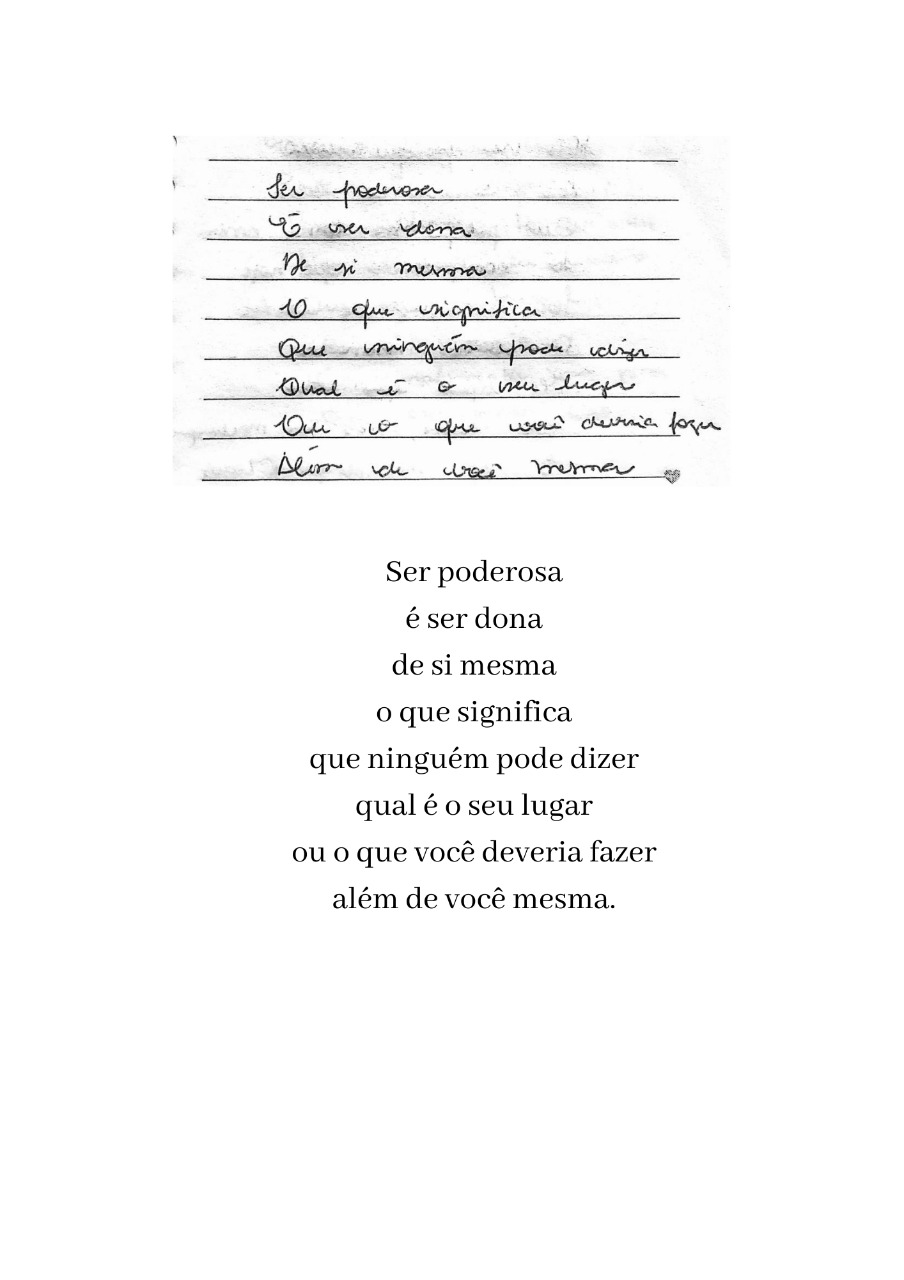 Ser poderosa
É ser dona
De si mesma
O que significa
Que ninguém pode dizer
Qual é o seu lugar
Ou o que você deveria fazer
Além de você mesma
Ser poderosa
é ser dona
de si mesma
o que significa
que ninguém pode dizer
qual é o seu lugar
ou o que você deveria fazer
além de você mesma.